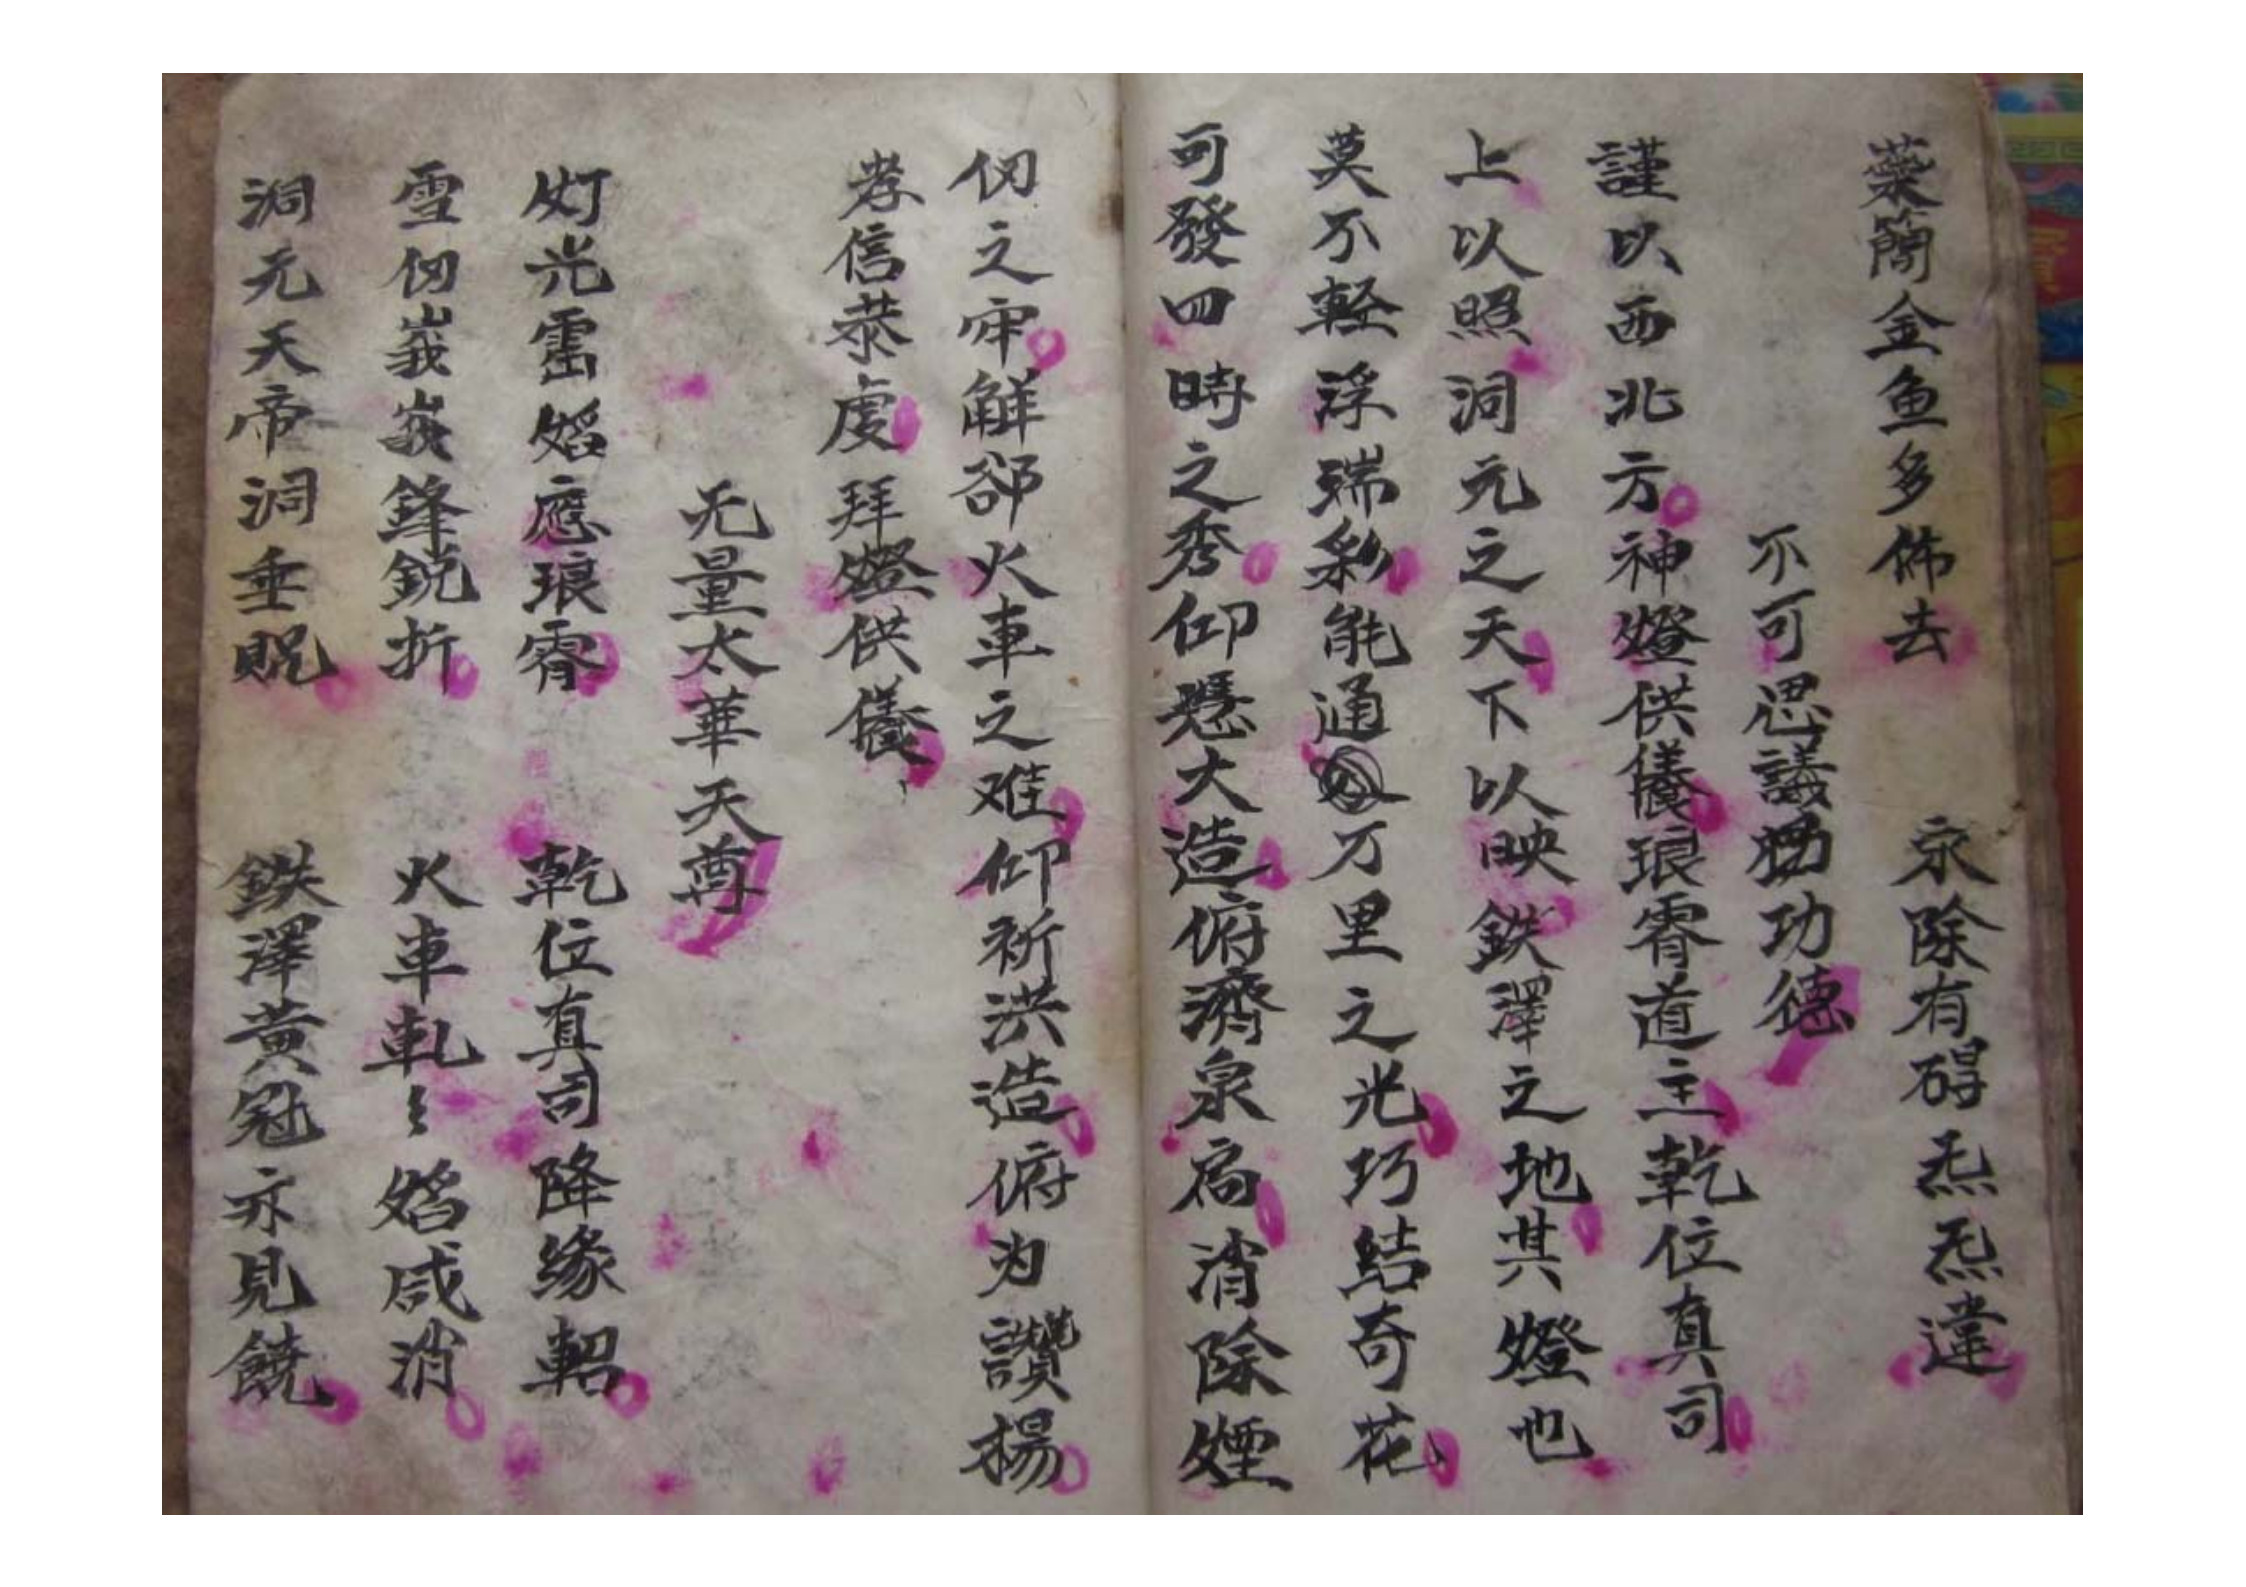 蘂簡金鱼多佈去　永除有碍炁炁違
不可思議功德
謹以西北方神燈供養琅霄道主乾位真司
上以照洞元之天下以映鉄澤之地其燈也
莫不軽浮瑞彩能通万里之光巧結奇花
可發四時之秀仰懸大造俯濟泉扃消除煙
仞之牢解卻火車之难仰祈洪造俯为讚揚
孝信恭虔拜燈供養
无量太華天尊
灯光雷焰應琅霄　乾位真司降緣軺
雪仞峩峩鋒銳折　火車軋〻焰咸消
洞元天帝洞垂貺　鉄澤黃冠亦見饒